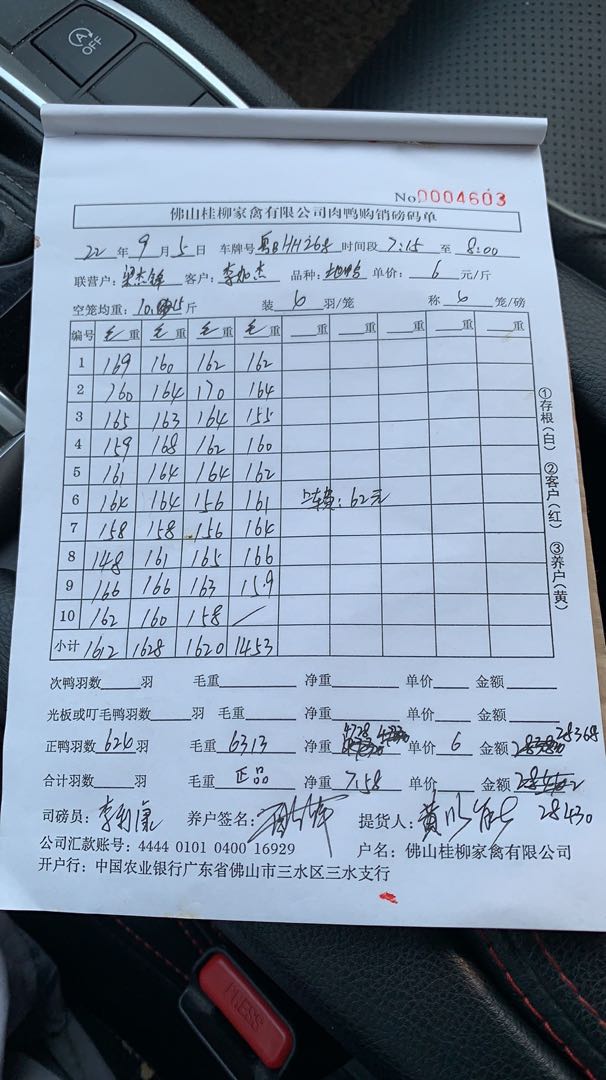 A OFF
No 0004603
佛山桂柳家禽有限公司肉鸭购销磅码单
22 年 9 月 5 日 车牌号 粤BHH268 时间段 7:15 至 8:00
联营户: 梁杰锋 客户: 李加杰 品种: 单价: 6 元/斤
空笼均重: 斤 装 6 羽/笼 称 6 笼/磅
编号 毛重 毛重 毛重 毛重 重 重 重 重
1 169 160 162 162
2 160 164 170 164
3 165 163 164 155
4 159 168 162 160
5 161 164 164 162
6 164 164 156 161 62元
7 158 158 156 164
8 148 161 165 166
9 166 166 163 159
10 162 160 158 /
小计 1612 1628 1620 1453
①存根(白) ②客户(红) ③养户(黄)
次鸭羽数 羽 毛重 净重 单价 金额
光板或叮毛鸭羽数 羽 毛重 净重 单价 金额
正鸭羽数 626 羽 毛重 6313 净重 4728 单价 6 金额 28368
合计羽数 羽 毛重 正品 净重 7.58 单价 金额
司磅员: 李利康 养户签名: 提货人: 28430
公司汇款账号: 4444 0101 0400 16929 户名: 佛山桂柳家禽有限公司
开户行: 中国农业银行广东省佛山市三水区三水支行
PRESS